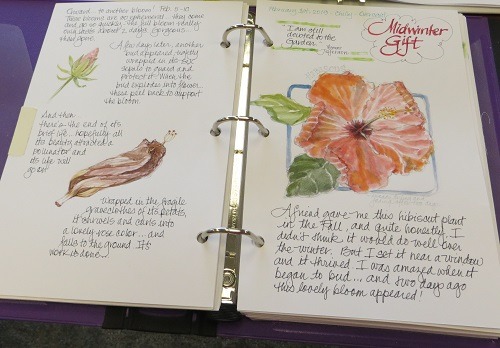 Onward - to another bloom! Feb. 5-10
These blooms are so ephemeral - they come
and go so quickly. The full bloom really
only lasts about 2 days. Gorgeous
days, those.
A few days later, another
bud appeared, tightly
wrapped in its six
sepals to guard and
protect it. When the
bud explodes into flower
these peel back to support
the bloom.
And then
there's the end of its
brief life... hopefully all
its beauty attracted a
pollinator and
its life will
go on!
Wrapped in the fragile
graveclothes of its petals,
it shrivels and curls into
a lovely rose color... and
falls to the ground. It's
work is done...
I am still
devoted to the
garden.
Midwinter
Gift
A friend gave me this hibiscus plant
in the Fall, and quite honestly, I
didn't think it would do well over
the winter. But I set it near a window
and it thrived. I was amazed when it
began to bud... and two days ago
this lovely bloom appeared!